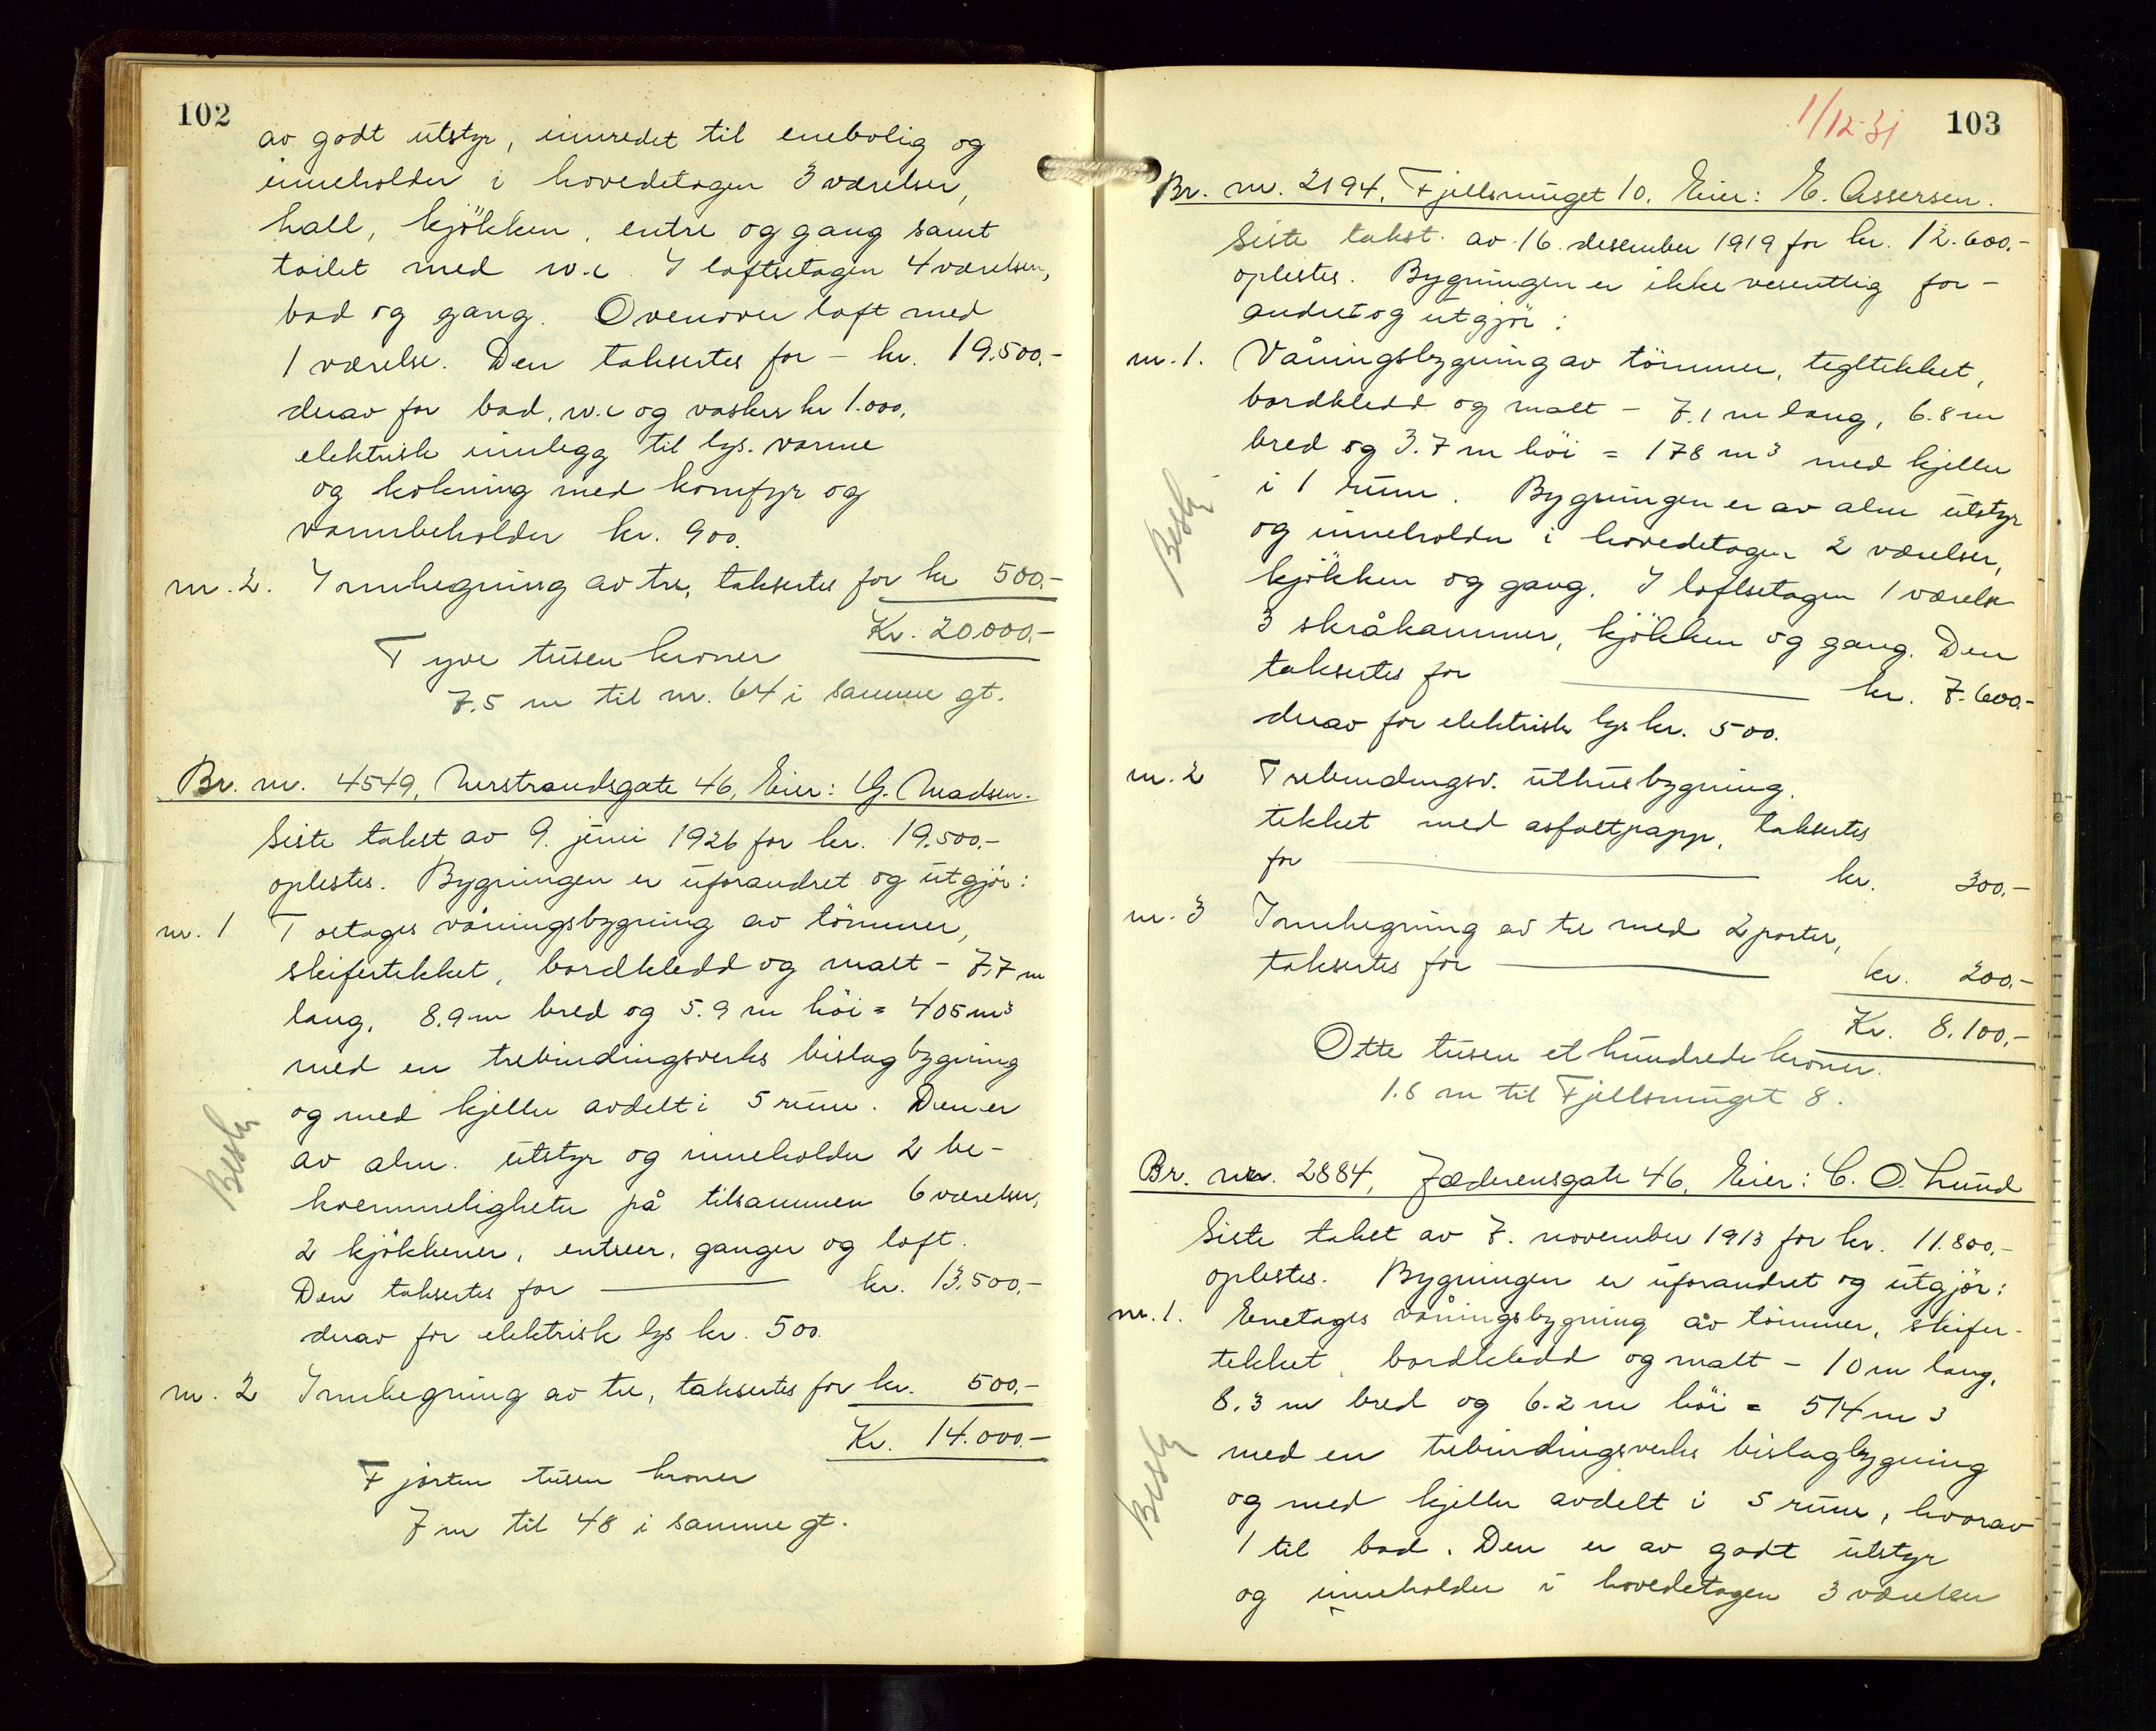 102
av godt utstyr, innredet til enebolig og
inneholder i hovedetagen 3 værelser,
hall, kjökken, entre og gang samt
toilet med w.c. I loftsetagen 4 værelser,
bad og gang. Ovenover loft med
1 værelse. Den taksertes for - kr. 19.500.-
derav for bad, w.c og vaskers kr 1.000,
elektrisk innlegg til lys. varme
og kokning med komfyr og
varmbeholder kr. 900.
nr. 2. Innhegning av tre, taksertes for kr 500.-
Kr. 20.000.-
Tyve tusen kroner
7.5 m til nr. 64 i samme gt.
Br. nr. 4549, Nerstrandsgate 46, Eier: G. Madsen.
Siste takst av 9. juni 1926 for kr. 19.500.-
oplestes. Bygningen er uforandret og utgjör:
nr. 1 Toetages våningsbygning av tömmer,
skifertekket, bordkledd og malt - 7,7 m
lang, 8.9 m bred og 5.9 m höi = 405 m³
med en trebindingsverks bislagbygning
og med kjeller avdelt i 5 rum. Den er
av alm. utstyr og inneholder 2 be-
kvemmeligheter på tilsammen 6 værelser,
2 kjökkener, entreer, ganger og loft.
Den taksertes for kr. 13.500.-
derav for elektrisk lys kr. 500.
nr. 2 Innhegning av tre, taksertes for kr. 500.-
Kr. 14.000.-
Fjorten tusen kroner
7 m til 48 i samme gt.
1/12-31
103
Br. nr. 2194, Fjellsmuget 10. Eier: E. Assersen.
Siste takst av 16. desember 1919 for kr. 12.600.-
oplestes. Bygningen er ikke vesentlig for-
andret og utgjör:
nr. 1. Våningsbygning av tömmer, tegltekket,
bordkledd og malt - 7.1 m lang, 6.8 m
bred og 3.7 m höi = 178 m³ med kjeller
i 1 rum. Bygningen er av alm utstyr
og inneholder i hovedetagen 2 værelser,
kjökken og gang. I loftsetagen 1 værelse
3 skråkammer, kjökken og gang. Den
taksertes for kr. 7.600.-
derav for elektrisk lys kr. 500.
nr. 2 Trebindingsv. uthusbygning.
tekket med asfaltpapp, taksertes
for kr. 300.-
nr. 3 Innhegning av tre med 2 porter,
taksertes for kr. 200.-
Kr. 8.100.-
Otte tusen et hundrede kroner.
1.8 m til Fjellsmuget 8.
Br. nr. 2884, Jæderensgate 46, Eier: C. O. Lund
Siste takst av 7. november 1913 for kr. 11.800.-
oplestes. Bygningen er uforandret og utgjör:
nr. 1. Enetages våningsbygning av tömmer, skifer-
tekket, bordkledd og malt - 10 m lang,
8.3 m bred og 6.2 m höi = 514 m3
med en trebindingsverks bislagbygning
og med kjeller avdelt i 5 rum, hvorav
1 til bad. Den er av godt utstyr
og inneholder i hovedetagen 3 værelser